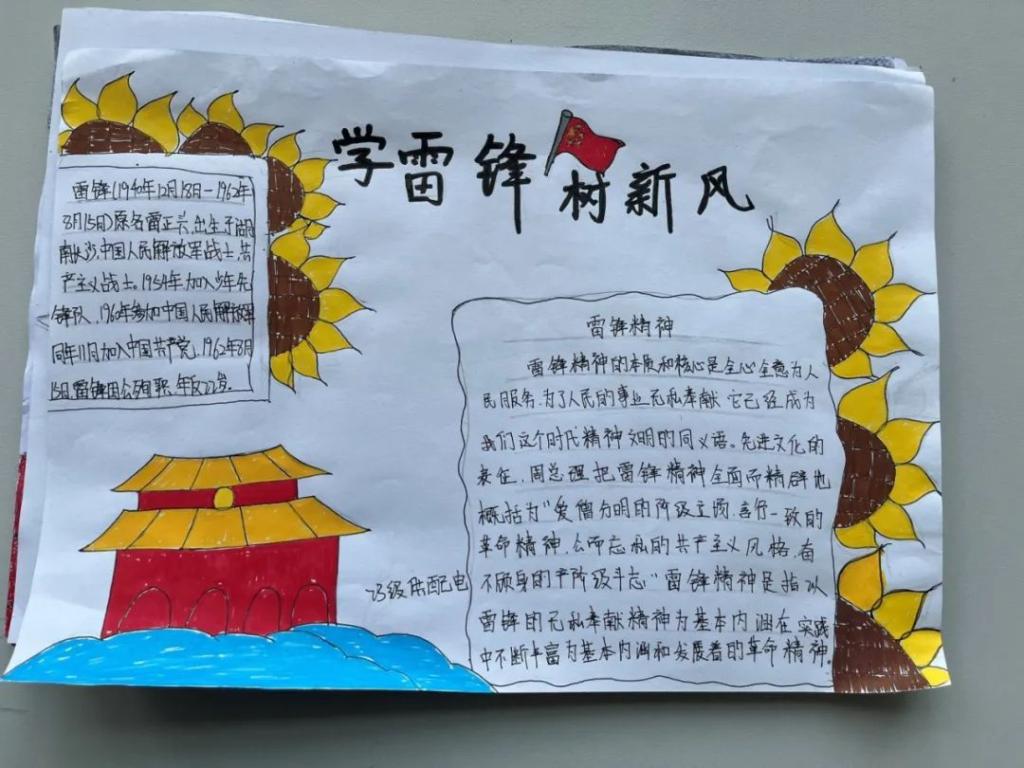 学雷锋 树新风
雷锋(1940年12月18日-1962年
8月15日)原名雷正兴,出生于湖
南长沙,中国人民解放军战士,共
产主义战士。1954年加入少年先
锋队,1960年参加中国人民解放军
同年11月加入中国共产党,1962年8月
15日雷锋因公殉职,年仅22岁。
雷锋精神
雷锋精神的本质和核心是全心全意为人
民服务,为了人民的事业无私奉献,它已经成为
我们这个时代精神文明的同义语。先进文化的
表征,周总理把雷锋精神全面而精辟地
概括为"爱憎分明的阶级立场,言行一致的
革命精神,公而忘私的共产主义风格,奋
不顾身的产阶级斗志"雷锋精神是指以
雷锋的无私奉献精神为基本内涵在实践
中不断丰富为基本内涵和发展着的革命精神。
23级供配电